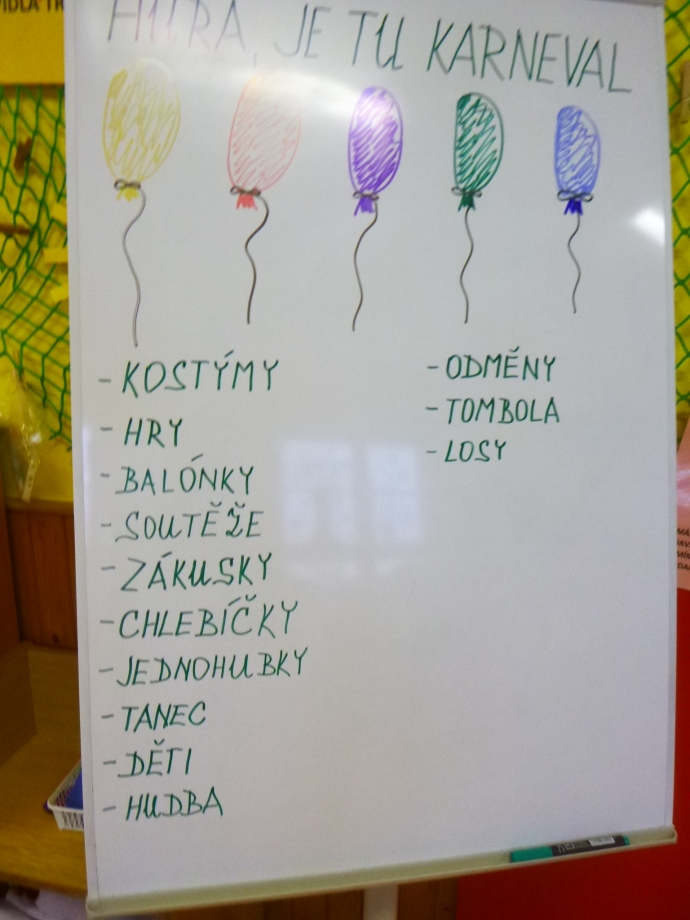 HURA, JE TU KARNEVAL
- KOSTÝMY
- HRY
- BALÓNKY
- SOUTĚŽE
- ZÁKUSKY
- CHLEBÍČKY
- JEDNOHUBKY
- TANEC
- DĚTI
- HUDBA
- ODMĚNY
- TOMBOLA
- LOSY